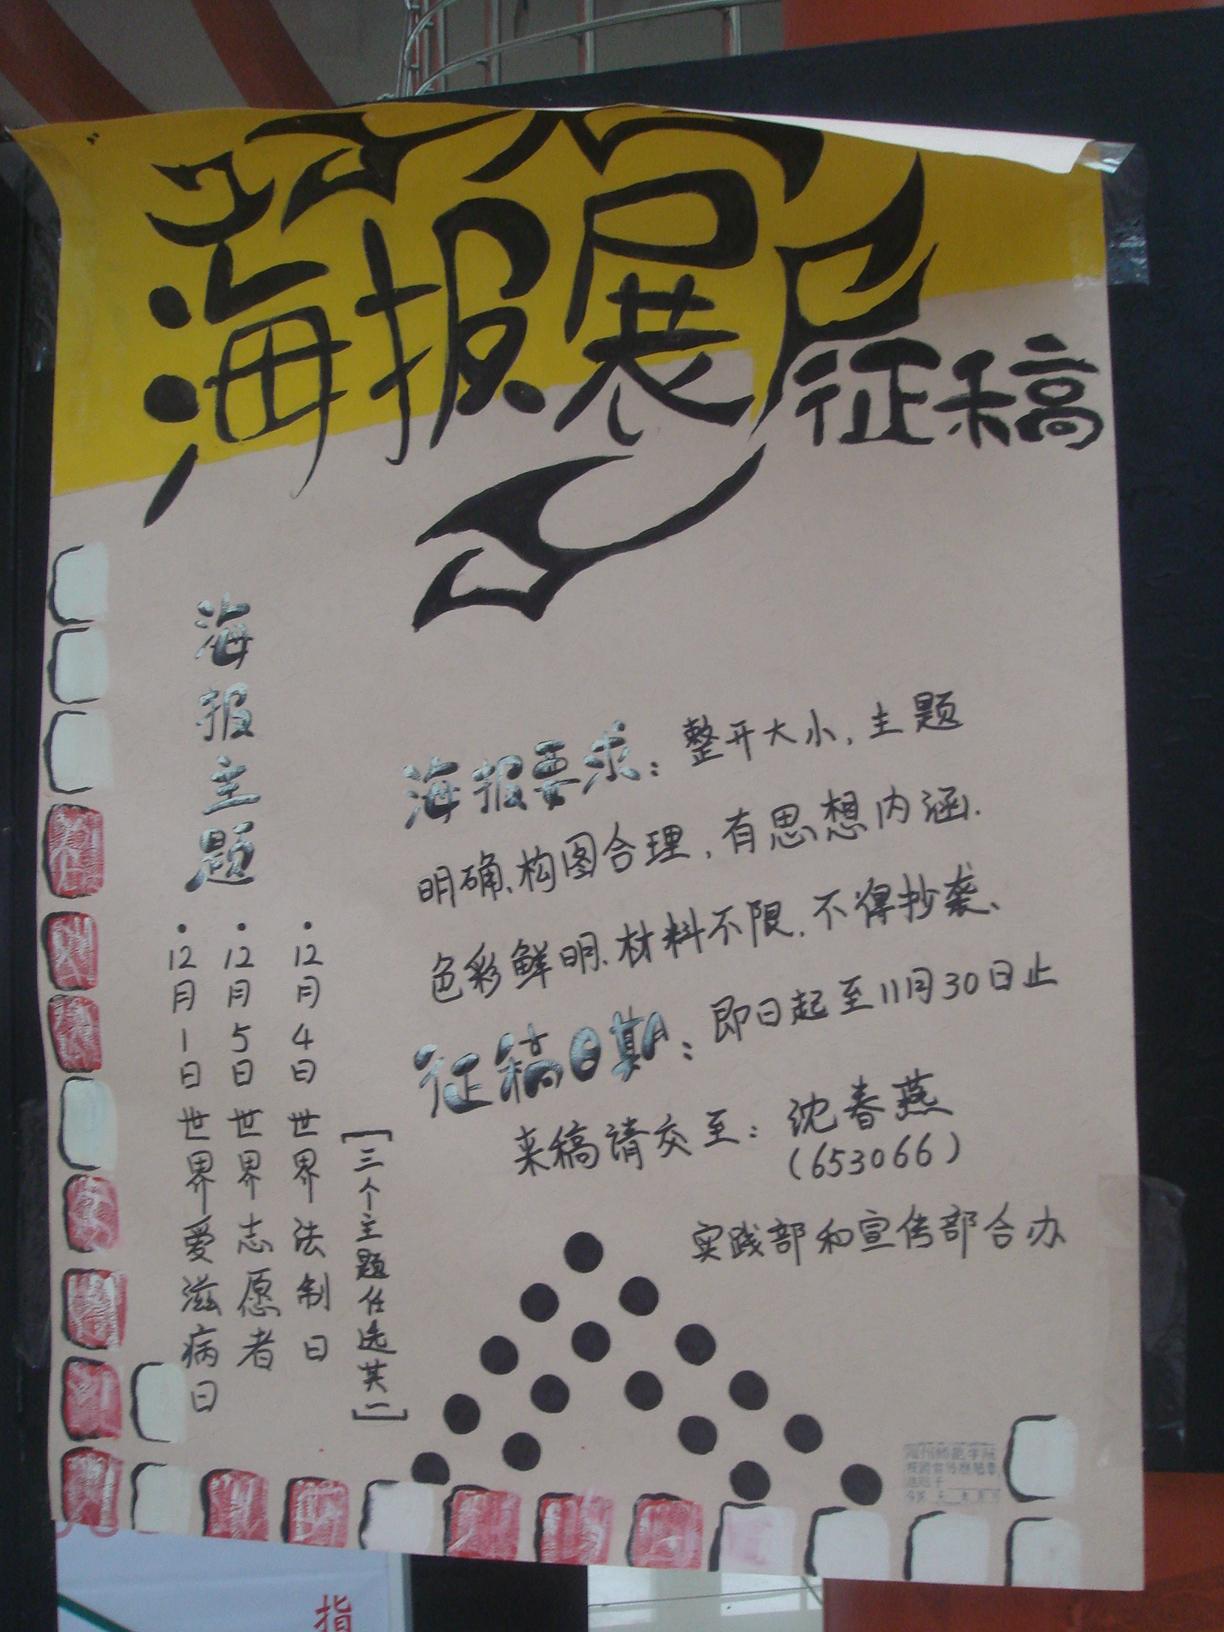 海报展
征稿
海报主题
·12月1日世界爱滋病日
·12月5日世界志愿者
·12月4日世界法制日
[三个主题任选其一]
海报要求：整开大小，主题
明确、构图合理，有思想内涵.
色彩鲜明、材料不限，不得抄袭、
征稿日期：即日起至11月30日止
来稿请交至：沈春燕
(653066)
实践部和宣传部合办
指